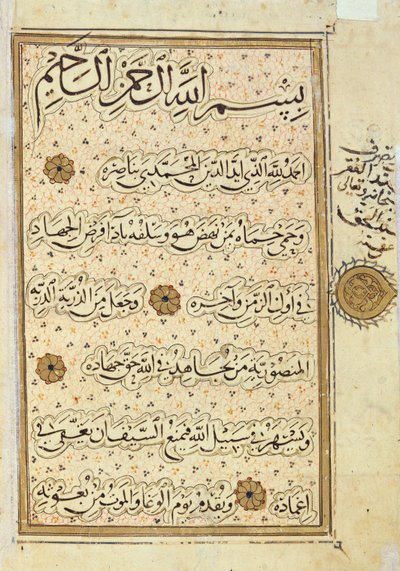 بسم الله الرحمن الرحيم
الحمد لله الذي أيد الدين المحمدي بناصره
وحمى حماه بمن نهض هو وسلفه بأداء فرض الجهاد
في أول الزمن وآخره وجعل من الذرية
المنصورية من يجاهد في الله حق جهاده
ويسهر في سبيل الله فيمنع السيف أن يغفى في
إغماده ويقدم يوم الوغا والموت من بعوثه
الفقير